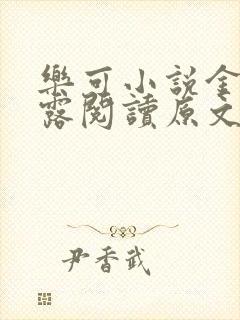 樂可小說金
露閱讀原文
尹香武